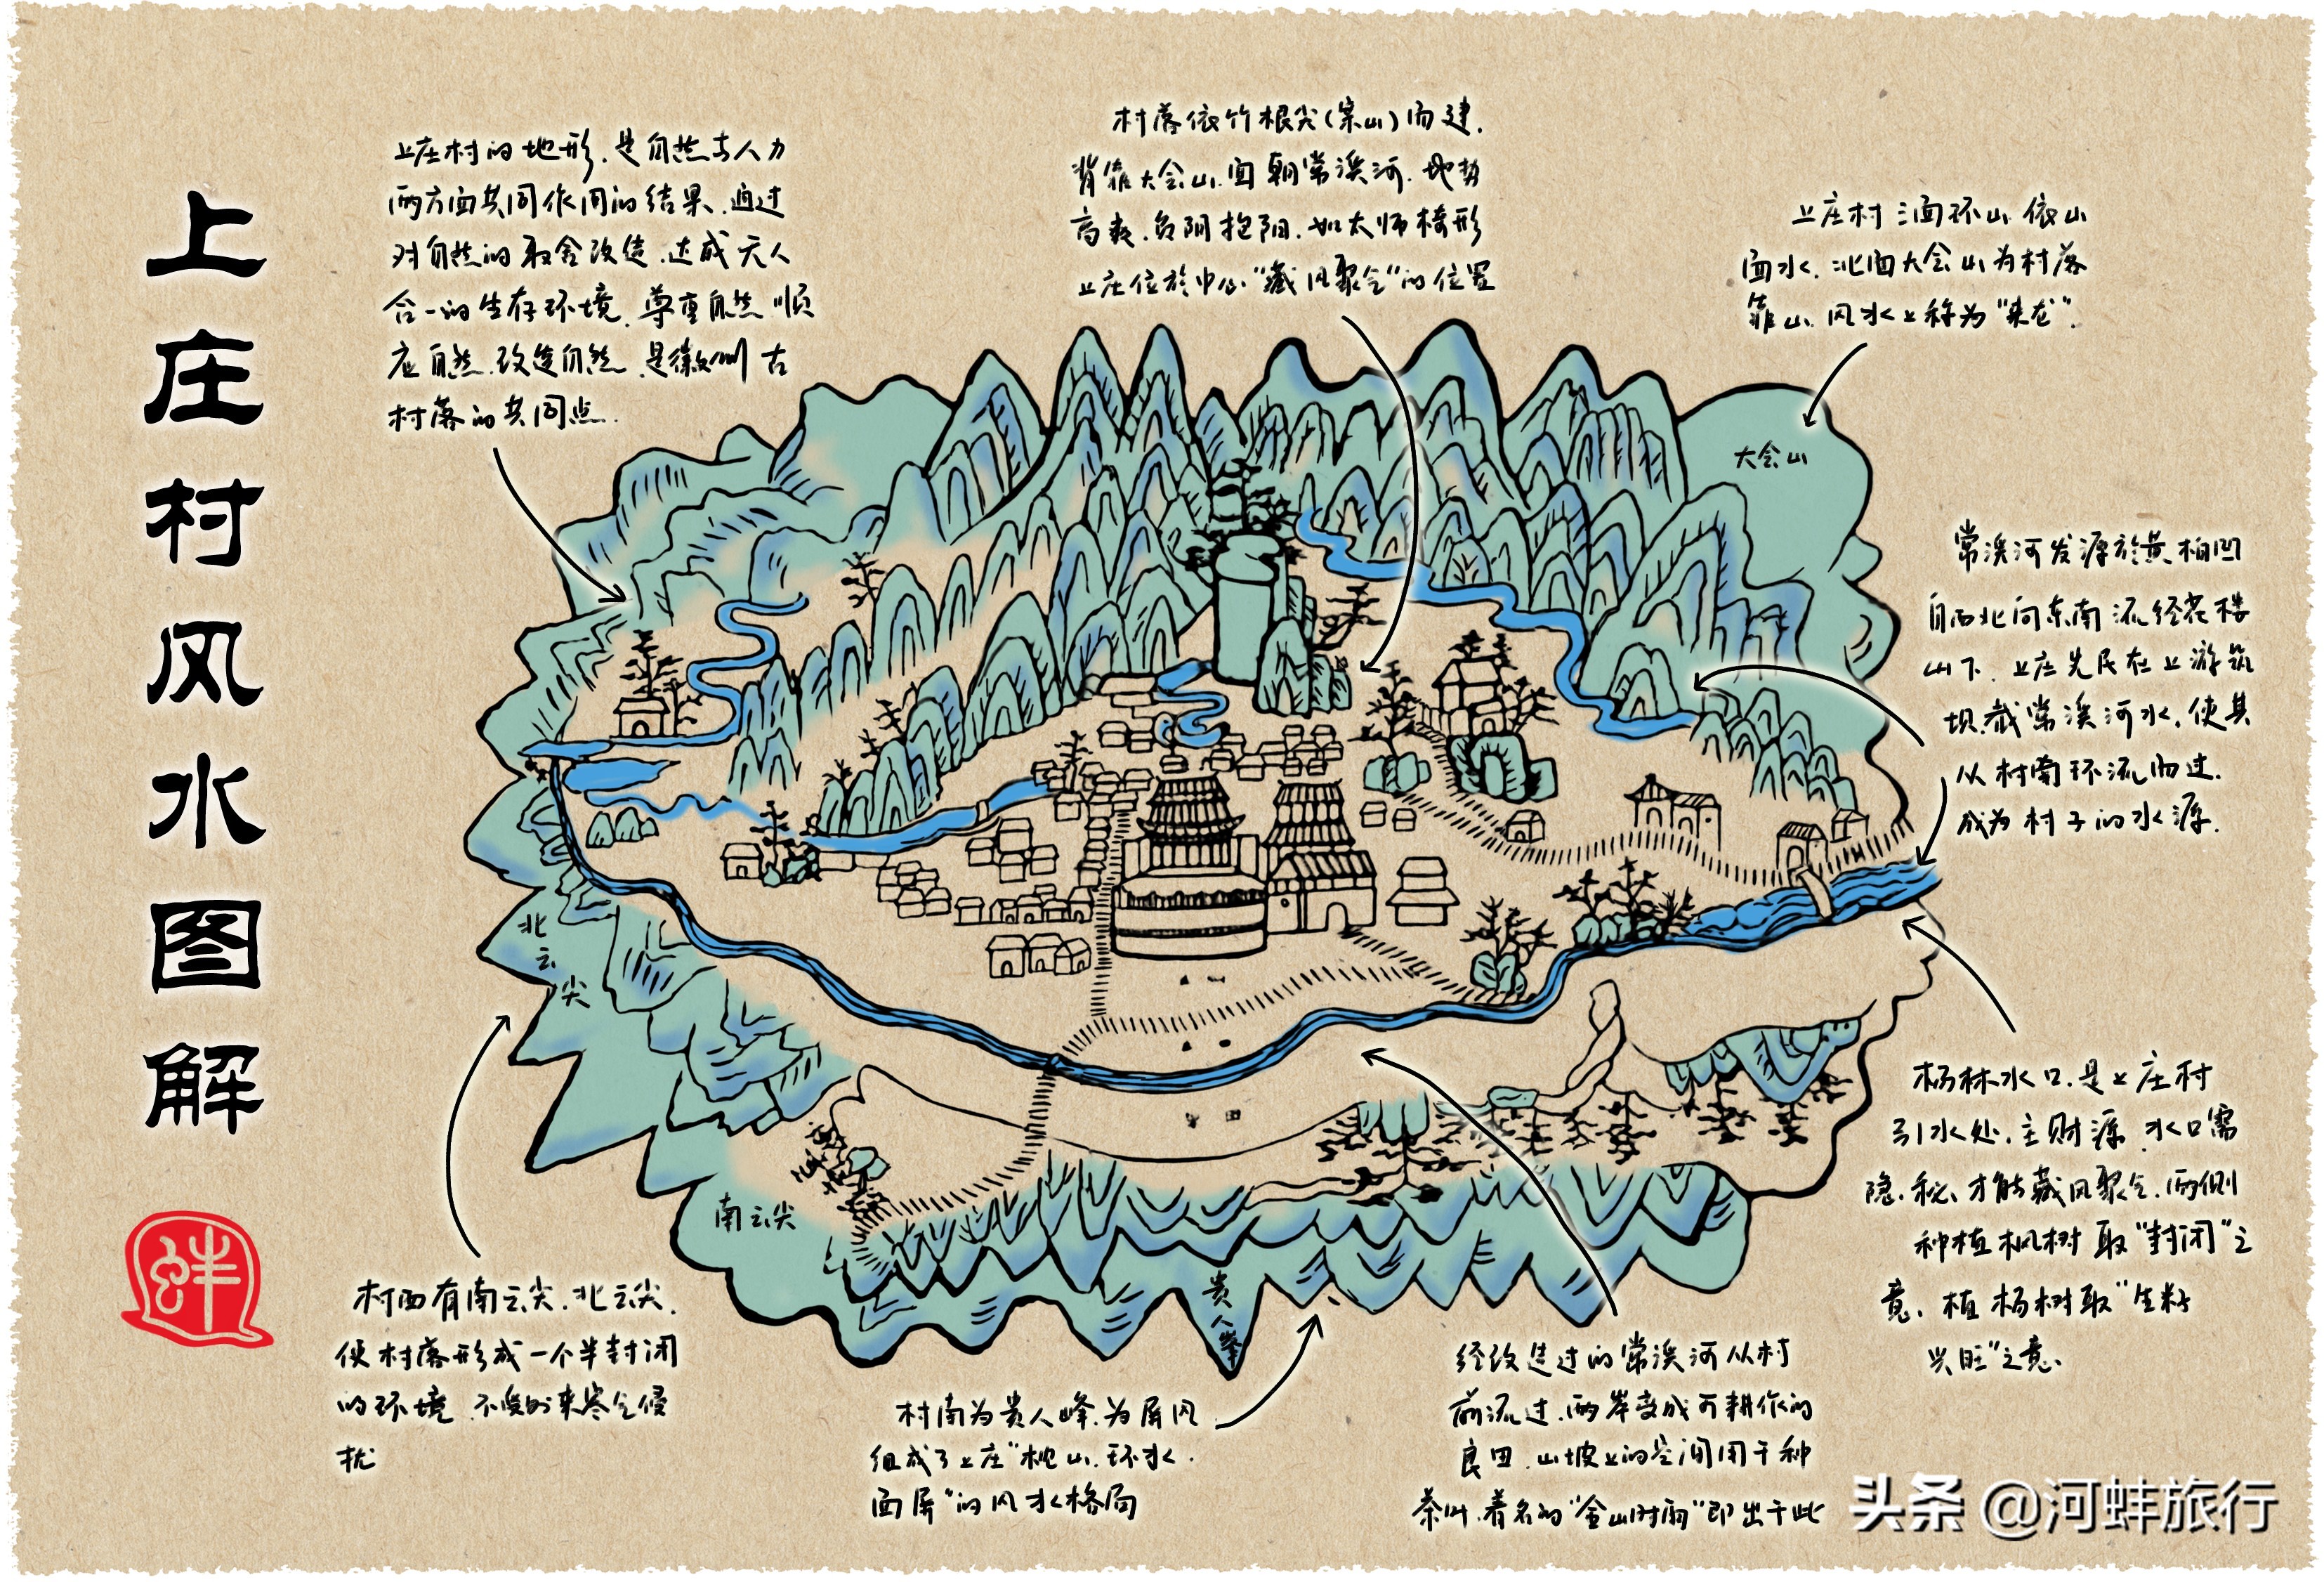 上庄村风水图解
上庄村的地形，是自然与人力
两方面共同作用的结果，通过
对自然的取舍改造，达成天人
合一的生存环境，尊重自然 顺
应自然，改造自然，是徽州古
村落的共同点.
村落依竹根尖(案山)而建，
背靠大会山，面朝常溪河，地势
高爽，负阴抱阳，如太师椅形
上庄位於中心"藏风聚气"的位置
上庄村三面环山，依山
面水，北面大会山为村落
靠山，风水上称为"来龙".
大会山
常溪河发源於黄柏凹
自西北向东南流经花楼
山下，上庄先民在上游筑
坝，截常溪河水，使其
从村南环流而过，
成为村子的水源.
北云尖
南云尖
贵人峰
杨林水口，是上庄村
引水处，主财源，水口需
隐秘，才能藏风聚气，两侧
种植枫树取"封闭"之
意，植杨树取"生籽
兴旺"之意，
村西有南云尖，北云尖，
使村落形成一个半封闭
的环境，不受外来寒气侵
扰
村南为贵人峰，为屏风
组成了上庄"枕山，环水，
面屏"的风水格局
经改造过的常溪河从村
前流过，两岸变成可耕作的
良田，山坡上的空间用于种
茶叶，著名的"金山时雨"即出于此
蚌
头条 @河蚌旅行